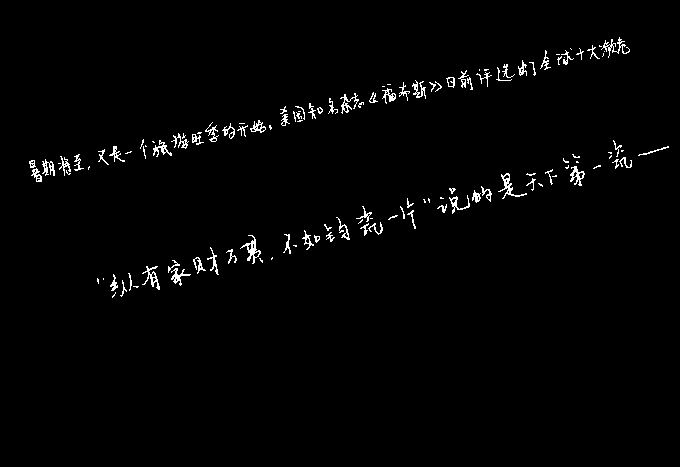 暑期将至，又是一个旅游旺季的开始。美国知名杂志《福布斯》日前评选出了全球十大濒危
“纵有家财万贯，不如钧瓷一片”说的是天下第一瓷——